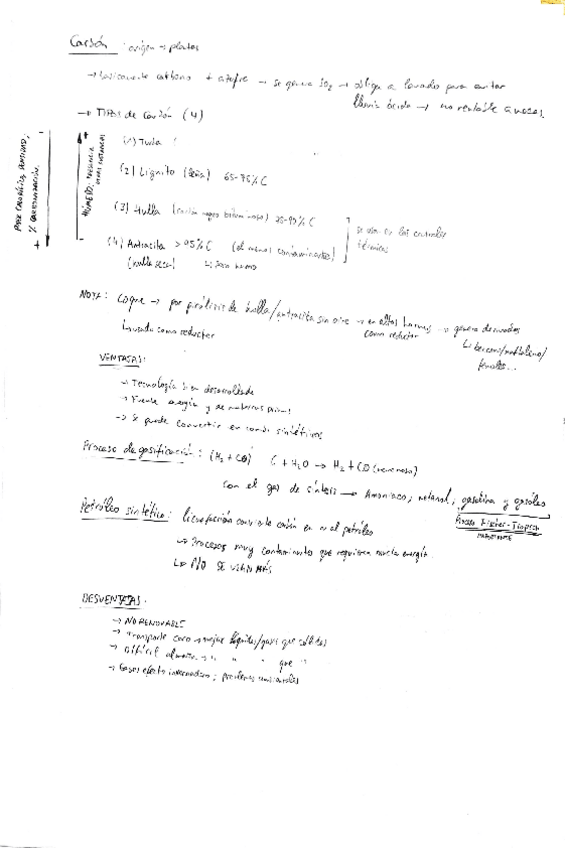 Carbón: origen → plantas
→ básicamente carbono + azufre → se genera SO₂ → obliga a lavado para evitar
lluvia ácida → no rentable a veces.
→ TIPOS de carbón (4)
(1) Turba
(2) Lignito 65-75% C
(3) Hulla (carbón negro bituminoso) 75-95% C
(4) Antracita > 95% C (el menos contaminante)
(hulla seca)
se usan en las centrales
térmicas
PODER CALORÍFICO,
% CARBONIZACIÓN.
HUMEDAD,
NOTA: Coque → por pirólisis de hulla/antracita sin aire → en altos hornos → genera derivados
como reductor
usado como reductor
benceno/naftaleno/
fenoles...
VENTAJAS:
→ Tecnología desarrollada
→ Fuente energía y de materias primas
→ Se puede convertir en comb. sintéticos
Proceso de gasificación: (H₂ + CO) C + H₂O → H₂ + CO (venenoso)
Con el gas de síntesis → Amoniaco, metanol, gasolina y gasóleo
Proceso Fischer-Tropsch
Petróleo sintético: licuefacción convierte carbón en petróleo
→ Procesos muy contaminantes que requieren mucha energía.
↳ NO SE USAN MÁS
DESVENTAJAS:
→ NO RENOVABLE
→ Transporte caro → mejor líquidos/gases que sólidos
→ Difícil almacen. → " " " que "
→ Gases efecto invernadero; problemas ambientales